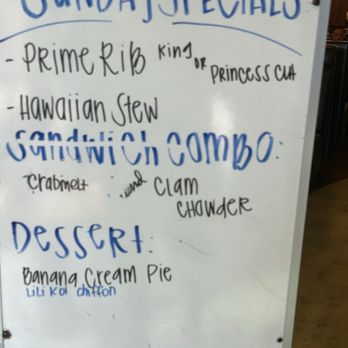 SUNDAY SPECIALS
- PRIME RIB King OR PRINCESS CUt
- Hawaiian Stew
Sandwich COMBO:
Crabmelt and CLAM CHOWDER
DESSERT:
Banana Cream Pie
LiLi KOi chiffon